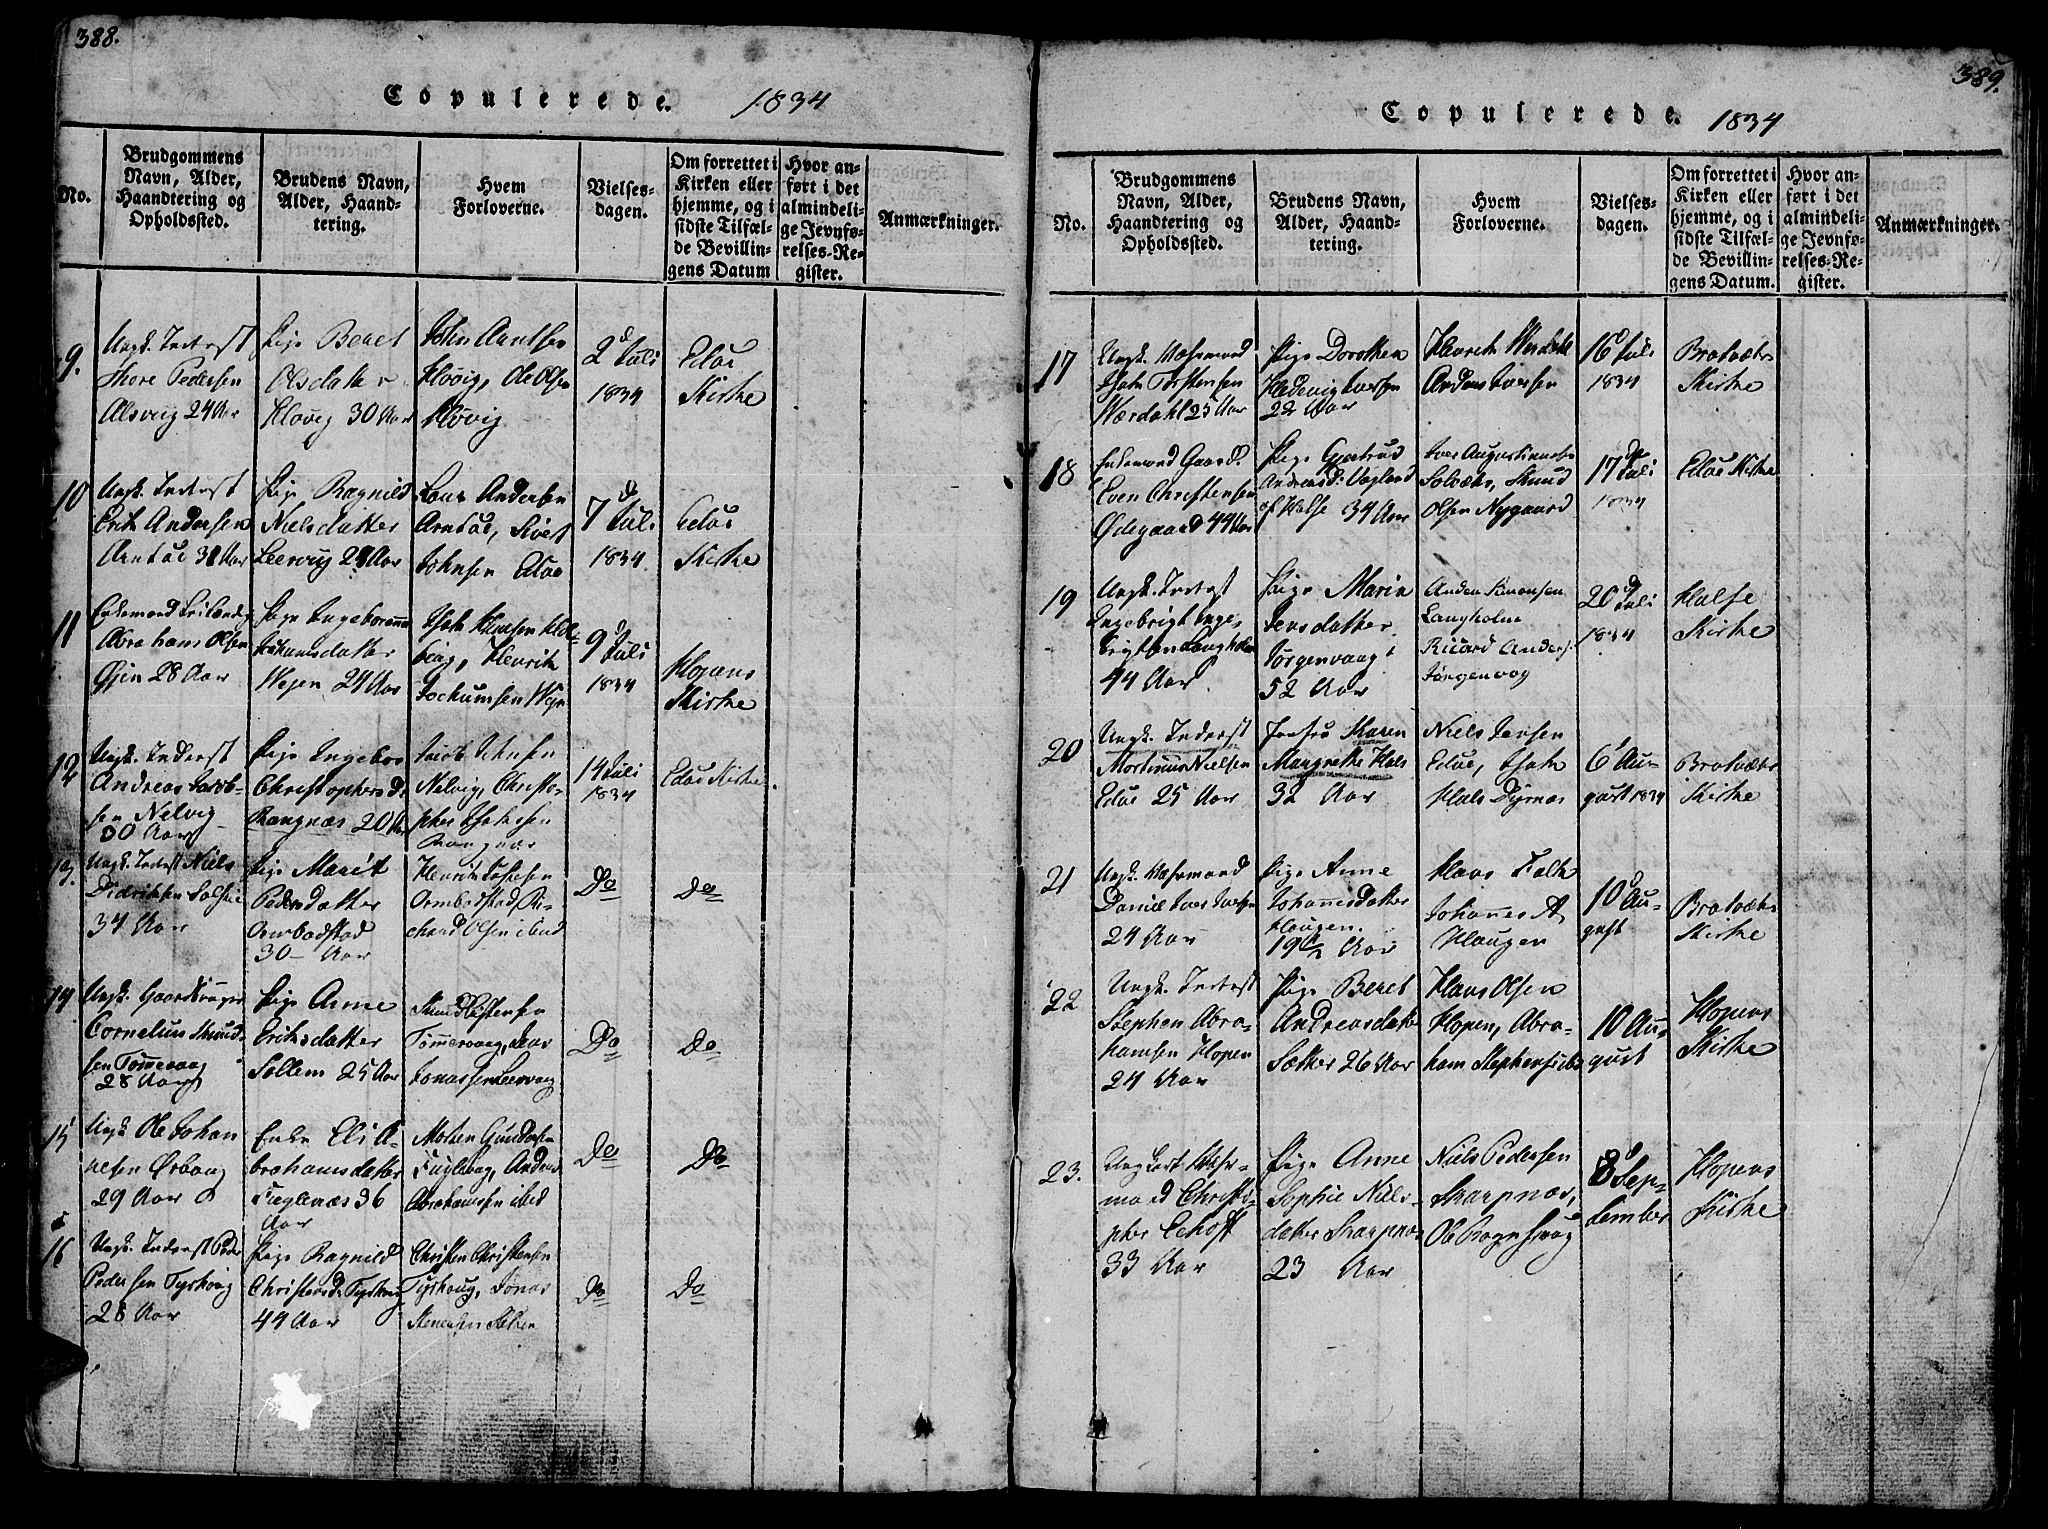 388.
Copulerede. 1834
No.
Brudgommens
Navn, Alder,
Haandtering og
Opholdssted.
Brudens Navn,
Alder, Haand-
tering.
Hvem
Forloverne.
Vielses-
dagen.
Om forrettet i
Kirken eller
hjemme, og i
sidste Tilfæl-
de Bevillin-
gens Datum
Hvor an-
ført i det
almindeli-
ge Jevnfø-
relses-Re-
gister.
Anmærkninger.
9.
Ungk. Inderst
Thore Pedersen
Alsvig 24 Aar
Pige Beret
Olsdatter
Kløvig 30 Aar
John Arntsen
Kløvig, Ole Olsen
Kløvig
2 d Juli
1834
Edøe
Kirke
10
Ungk. Inderst
Erik Andersen
Arntøe 31 Aar
Pige Ragnild
Nielsdatter
Leervig 28 Aar
Lars Andersen
Arntøe, Sivert
Johnsen Edøe
7 d Juli
1834.
Edøe
Kirke
11
Enkemand
Abraham Olsen
Øjen 28 Aar
Pige Ingeboranna
Johansdatter
Wejen 24 Aar
Hansen
Henrik
Jochumsen Wejen
9 d Juli
1834
Hopens
Kirke
12
Ungk. Inderst
Andreas Jacob-
sen Nelvig
30 Aar
Pige Ingebor
Christophersd.
Rangnæs 20 Aar
Jacob Johnsen
Nelvig, Christo-
pher
14 Juli
1834
Edøe Kirke.
13.
Ungk. Inderst Niels
Didriksen
34 Aar
Pige Marit
Pedersdatter
Ormbostad
30 Aar
Henrik
Ormbostad, Ri-
chard Olsen ibid
Do
Do
14
Ungk. Gaardbruger
Cornelius Knud-
sen Tømmervaag
28 Aar
Pige Anne
Eriksdatter
Sollem 25 Aar
Knud
Tømmervaag, Lars
Jonassen Leervaag
Do
Do
15
Ungk. Ole Johan
nesen
29 Aar
Enke Eli A-
brahamsdatter
Fuglenæs 36
Aar
Morten Gundersen
Fuglevaag, Anders
Abrahamsen ibid
Do
Do
16
Ungk. Inderst Peder
Pedersen Tyrhaug
28 Aar
Pige Ragnild
Christensd. Tyrhaug
44 Aar
Christen Christensen
Tyrhaug, Jonas
Stenersen
Do
Do
389.
Copulerede. 1834
No.
Brudgommens
Navn, Alder,
Haandtering og
Opholdssted.
Brudens Navn,
Alder, Haand-
tering.
Hvem
Forloverne.
Vielses-
dagen.
Om forrettet i
Kirken eller
hjemme, og i
sidste Tilfæl-
de Bevillin-
gens Datum.
Hvor an-
ført i det
almindeli-
ge Jevnfø-
relses-Re-
gister.
Anmærkninger.
17
Ungk. Huusmand
Torstensen
Værdahl 25 Aar
Pige Dorothea
Hedevig Iversen
22 Aar
Henrik Werdahl
Anders Iversen
16 d Juli
1834
Bratværs
Kirke
18
Enkemand Gaardb.
Even Christensen
Ødegaard 44 Aar
Pige Gjertrud
Andreasd. Vagland
af Halse 34 Aar
Iver Augustinusen
Solvær, Knud
Olsen Nygaard
17 de Juli
1834
Edøe Kirke
19
Ungk. Inderst
Ingebrigt Inge-
brigtsen Langholm
44 Aar
Pige Marin
Jensdatter
Jørgenvaag
52 Aar
Anders Simonsen
Langholm
Ricard Anders.
Jørgenvog
20 d Juli
1834
Halse
Kirke
20
Ungk. Inderst
Mortinus Nielsen
Edøe 25 Aar
Jomfru Maren
Margrethe Hals
32 Aar
Niels Jensen
Edøe,
Hals Dyrnæs
6 Au-
gust 1834
Bratværs
Kirke
21
Ungk. Huusmand
Daniel Iver Iversen
24 Aar
Pige Anne
Johannesdatter
Haugen.
19 1/2 Aar
Klaus Falk
Johannes A.
Haugen
10 d Au-
gust
Bratværs
Kirke
22
Ungk. Inderst
Stephen Abra-
hamsen Hopen
24 Aar
Pige Beret
Andreasdatter
Sætter 26 Aar
Hans Olsen
Hopen, Abra-
ham Stephensen ibid
10 Au-
gust
Hopens
Kirke
23.
Ungkarl Huus-
mand Christo-
pher Echoff
33 Aar
Pige Anne
Sophie Niels-
datter Skarpnæs
23 Aar
Niels Pedersen
Skarpnæs,
Ole
8 d Sep-
tember
Hopens
Kirke